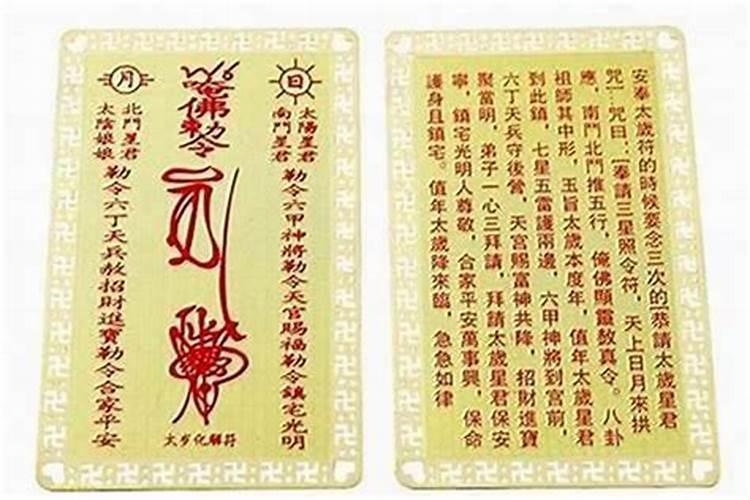 日
太陽星君
南鬥星君
勒令六甲神將勒令天官賜福勒令鎮宅光明
唵佛勅令
太岁化解符
月
北鬥星君
太陰娘娘
勒令六丁天兵敖招財進寶勒令合家平安
安奉太歲符的時候要念三次的[恭請太歲星君
咒]:咒曰:[奉請三星照令符，天上日月來拱
應，南鬥北鬥推五行，俺佛顯靈敖真令。八卦
祖師其中形，玉旨太歲本度年，值年太歲星君
到此鎮，七星五雷護兩邊，六甲神將到宮前，
六丁天兵守後營，天宮賜富神共降，招財進寶
聚當明，弟子一心三拜請，拜請太歲星君保安
寧，鎮宅光明人尊敬，合家平安萬事興，保命
護身且鎮宅。值年太歲降來臨，急急如律